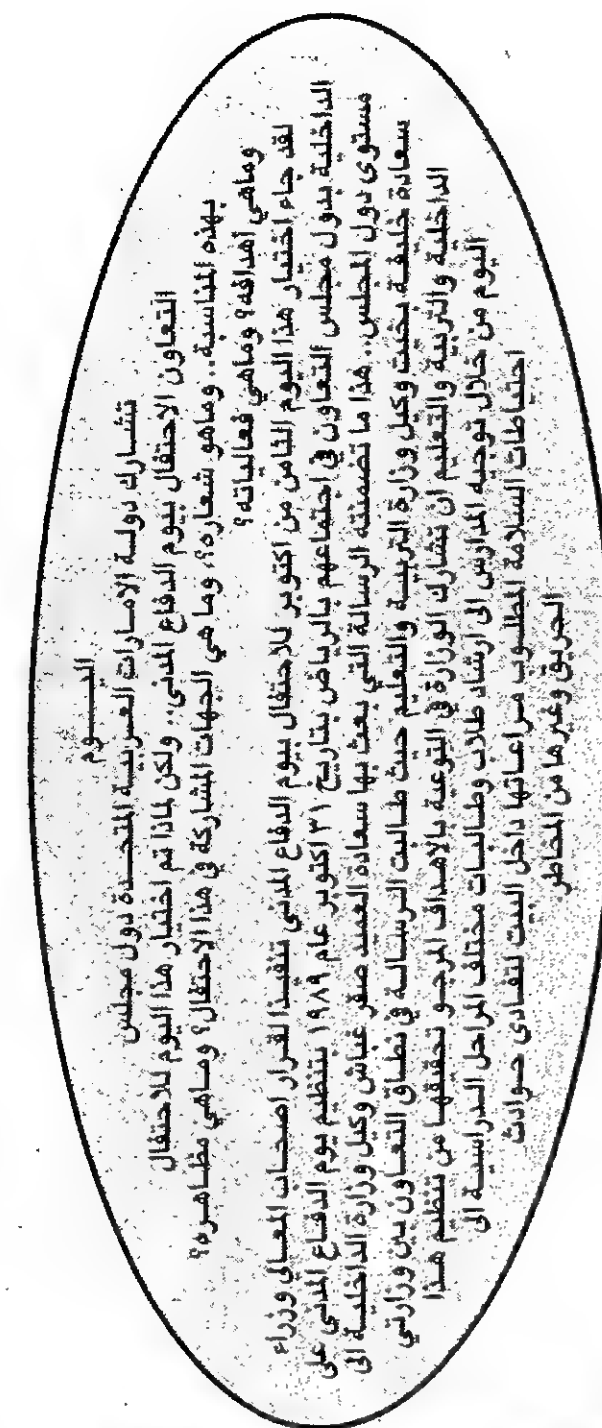 اليـــــوم
تشـــارك دولـــة الامـارات العــربيـــة المتحـــدة دول مجلس
التعاون الاحتفال بيوم الدفاع المدني.. ولكن لماذا تم اختيار هذا اليوم للاحتفال
بهذه المناسبة.. وماهو شعاره؟، وما هي الجهات المشاركة في هذا الاحتفال؟ ومـاهي مظـاهـره؟
وماهي أهدافه؟ وماهي فعالياته؟
لقد جاء اختيار هذا اليوم الثامن من اكتوبر للاحتفال بيوم الدفاع المدني تنفيـذا لقـرار اصحـاب المعـالي وزراء
الداخلية بدول مجلس التعاون في اجتماعهم بالرياض بتاريخ ٣١ اكتوبـر عام ١٩٨٩ بتنظيم يوم الدفـاع المدنـي على
مستوى دول المجلس.. هذا ما تضمنته الرسالة التي بعث بها سعادة العميد صقر غباش وكيل وزارة الداخليـة الى
سعادة خليفـة بخيت وكيل وزارة التربيـة والتعليم حيث طـالبت الـرسـالـة في نطـاق التعـاون بين وزارتي
الداخلية والتربية والتعليم ان تشارك الوزارة في التوعية بالاهداف المرجـو تحقيقهـا من تنظيم هـذا
اليوم من خلال توجيه المدارس الى ارشاد طلاب وطالبـات مختلف المراحل الـدراسيـة الى
احتياطات السلامة المطلـوب مـراعـاتهـا داخل البيت لتفـادى حـوادث
الحريق وغيرها من المخاطر